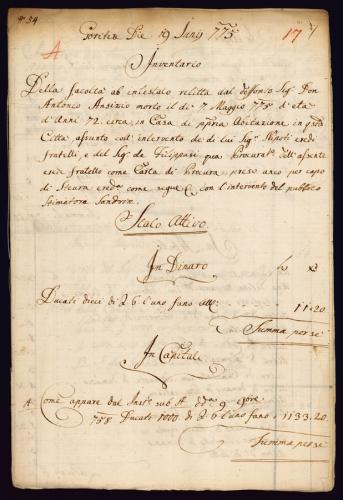 N° 54
Goritia Die 19 Junÿ 775
17
A
Inventario
Della facoltà ab intestato relitta dal defonto Sig. Don
Antonio Ansizio morto il di 7 Maggio 775 d'età
di Anni 72 circa, in Casa di ppria abitazione in
Città, assunto coll' intervento de di lui Sig. Nipoti eredi
fratelli, e del Sig. de Filippusi, qua Procurat. dell' assente
erede fratello come Carta di Procura, preso anco per capo
di Steura ered. come segue, con l'intervento del publico
Stimatore Sandrin.
Stato Attivo.
In Dinaro
Ducati dieci di 6 l'uno fano 11.20
Summa per se
In Capitali
A Come appare dal Inst. sub A 9
758 Ducati 1000 di 6 l'uno fano 1133.20
Summa per se